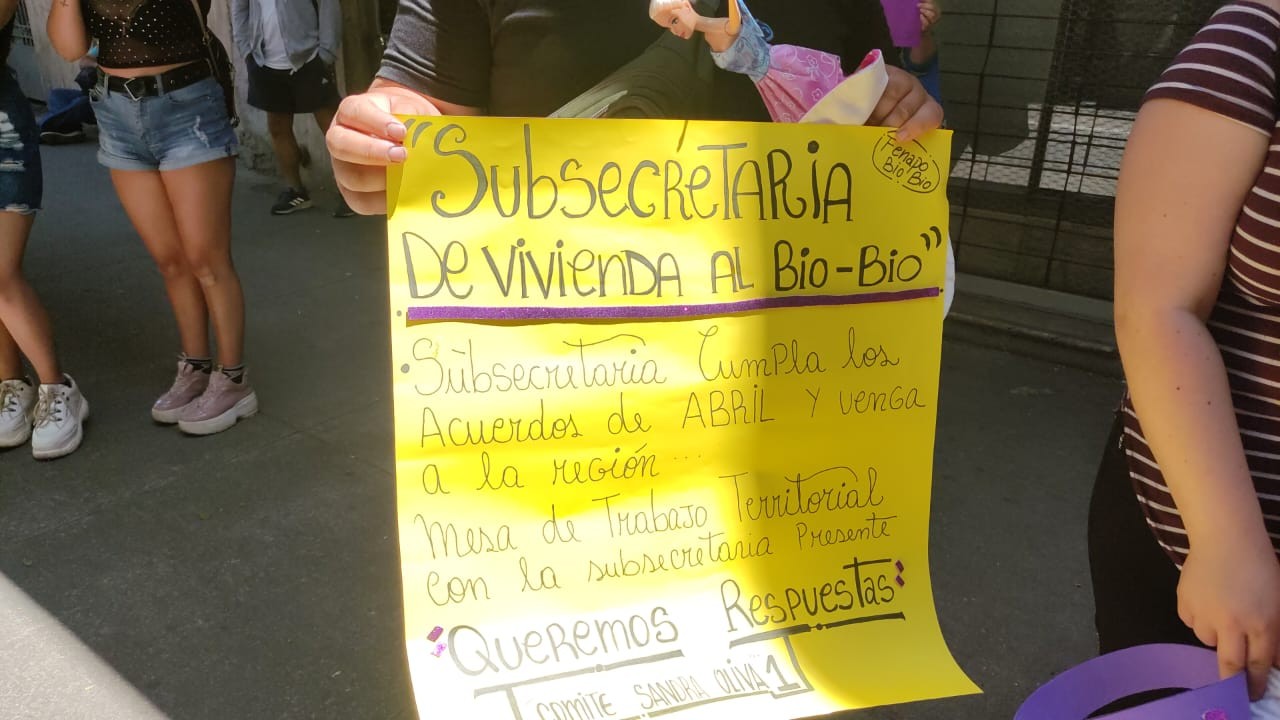 "SubsecretaRiA
De viviendA AL Bio-Bio"
Fenapo
Bio Bio
Subsecretaria Cumpla los
Acuerdos de ABRiL Y venga
a la región...
Mesa de Trabajo Territorial
con la subsecretaria Presente
Queremos Respuestas
COMITE SANDRA OLIVA 1